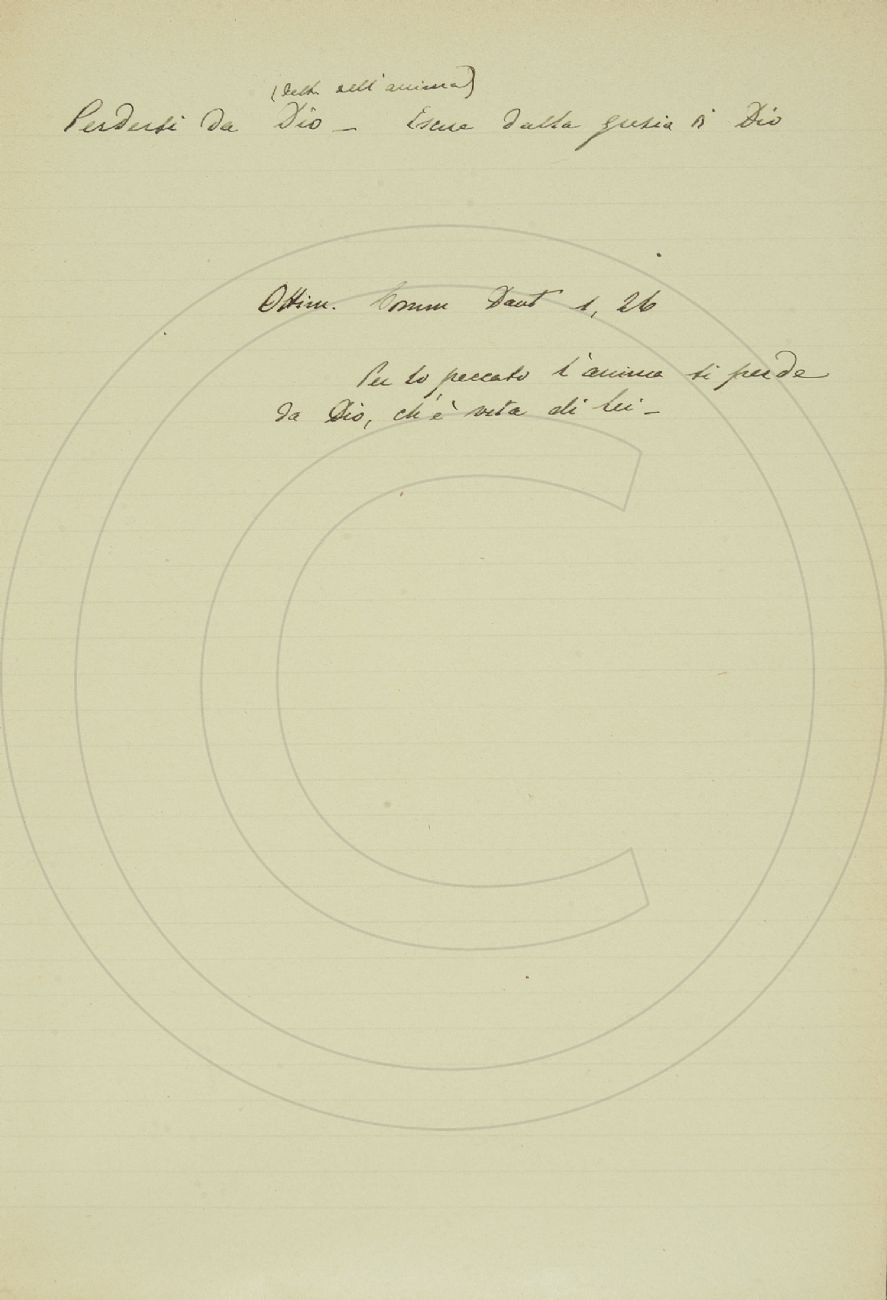 (detto dell'anima)
Perdersi da Dio — Uscire dalla grazia di Dio
Ottim. Comm Dant 1, 26
Per lo peccato l'anima si perde
da Dio, ch'è vita di lei —